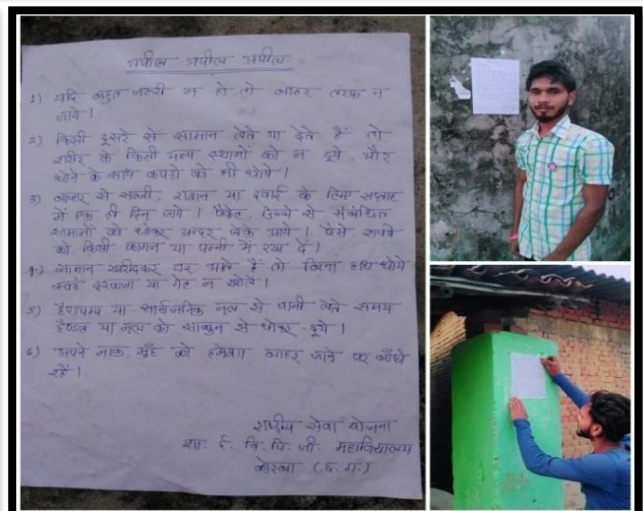 अपील अपील अपील
1) यदि बहुत जरूरी न हो तो बाहर तरफ न
जाये।
2) किसी दूसरे से सामान लेते या देते हैं तो
शरीर के किसी अन्य स्थानों को न छुये, और
धोने के साथ कपड़ो को भी धोये।
3) बाजार से सब्जी, राशन या दवाई के लिए सप्ताह
में एक ही दिन जाये। पैकेट, डिब्बे से संबंधित
सामानों को धोकर अन्दर लेके आये। पैसे रूपये
को किसी कागज या पन्नी में रख दें।
4) सामान खरीदकर घर आते हैं तो बिना हाथ धोये
दरवाजा या गेट न खोलें।
5) हैण्डपम्प या सार्वजनिक नल से पानी लेते समय
हैण्डल या नल को साबुन से धोकर छूये।
6) अपने नाक मुँह को हमेशा बाहर जाने पर बाँधे
रहें।
राष्ट्रीय सेवा योजना
शा. ई. वि. पि. जी. महाविद्यालय
कोरबा (छ.ग.)